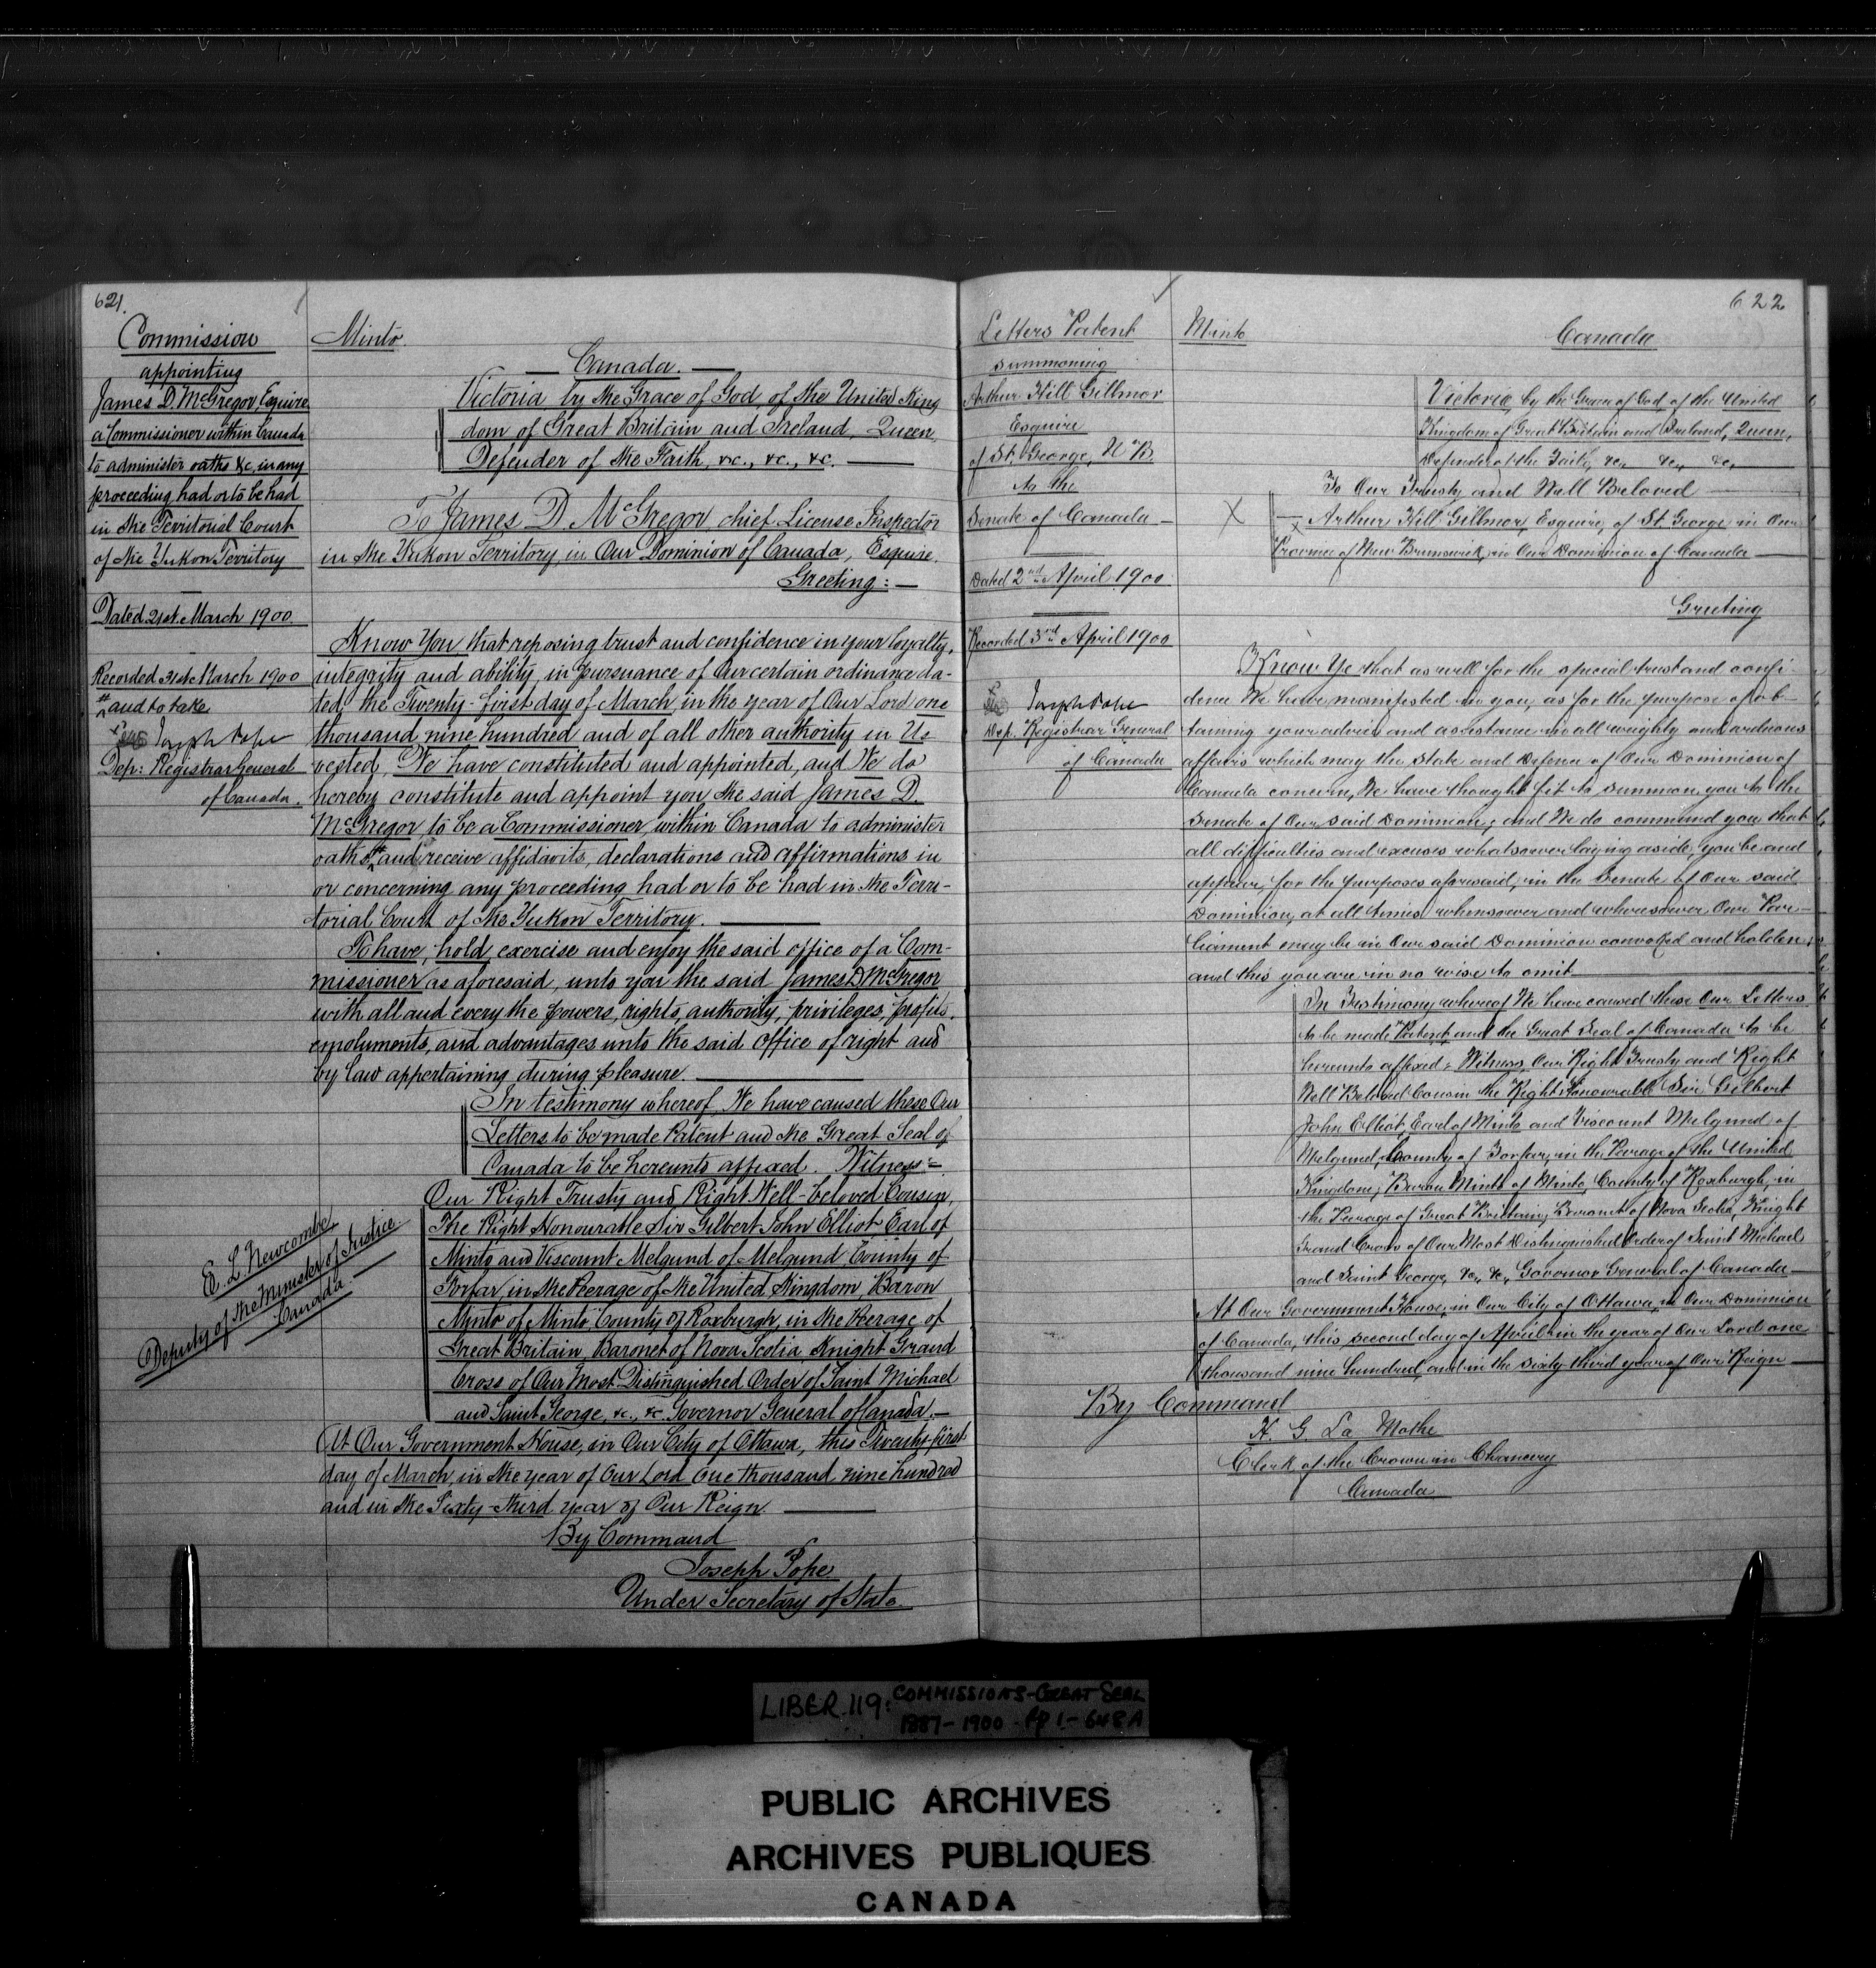 621.
Commission
appointing
James D. McGregor, Esquire
a Commissioner within Canada
to administer oaths &c, in any
proceeding had or to be had
in the Territorial Court
of the Yukon Territory
Dated 21st. March 1900.
Recorded 31st March 1900
# and to take
Joseph Pope
Dep: Registrar General
of Canada.
E. L. Newcombe
Deputy of the Minister of Justice
Canada.
Minto.
Canada.
Victoria by the Grace of God, of the United King
dom of Great Britain and Ireland, Queen,
Defender of the Faith, &c., &c., &c.
To James D. McGregor chief License Inspector
in the Yukon Territory, in Our Dominion of Canada, Esquire.
Greeting:—
Know You that reposing trust and confidence in your loyalty,
integrity and ability, in pursuance of Our certain ordinance da-
ted the Twenty-first day of March, in the year of Our Lord one
thousand nine hundred and of all other authority in Us
vested, We have constituted and appointed, and We do
hereby constitute and appoint you the said James D.
McGregor to be a Commissioner within Canada to administer
oaths # and receive affidavits, declarations and affirmations in
or concerning any proceeding had or to be had in the Terri-
torial Court of the Yukon Territory.
To have, hold, exercise and enjoy the said office of a Com-
missioner as aforesaid, unto you the said James D McGregor
with all and every the powers, rights, authority, privileges, profits,
emoluments, and advantages unto the said Office of right and
by law appertaining, during pleasure.
In testimony whereof We have caused these Our
Letters to be made Patent and the Great Seal of
Canada to be hereunto affixed. Witness:—
Our Right Trusty and Right Well-beloved Cousin,
The Right Honourable Sir Gilbert John Elliot, Earl of
Minto and Viscount Melgund of Melgund County of
Forfar, in the Peerage of the United Kingdom, Baron
Minto of Minto, County of Roxburgh, in the Peerage of
Great Britain, Baronet of Nova Scotia, Knight Grand
Cross of Our Most Distinguished Order of Saint Michael
and Saint George, &c., &c. Governor General of Canada.—
At Our Government House, in Our City of Ottawa, this Twenty-first
day of March, in the year of Our Lord One thousand nine hundred
and in the Sixty-third year of Our Reign.
By Command
Joseph Pope
Under Secretary of State.
622
Letters Patent
summoning
Arthur Hill Gillmor
Esquire
of St. George, N B
to the
Senate of Canada
Dated 2nd April 1900
Recorded 3rd April 1900
Joseph Pope
Dep. Registrar General
of Canada
Minto
Canada
Victoria, by the Grace of God, of the United
Kingdom of Great Britain and Ireland, Queen,
Defender of the Faith, &c, &c, &c,
To Our Trusty and Well Beloved
X Arthur Hill Gillmor, Esquire, of St. George in Our
Province of New Brunswick, in Our Dominion of Canada
Greeting
Know Ye that as well for the special trust and confi-
dence We have manifested in you, as for the purpose of ob-
taining your advice and assistance in all weighty and arduous
affairs which may the State and Defence of Our Dominion of
Canada concern, We have thought fit to summon you to the
Senate of Our said Dominion; and We do command you that
all difficulties and excuses whatsoever laying aside, you be and
appear, for the purposes aforesaid, in the Senate of Our said
Dominion, at all times whensoever and wheresoever Our Par-
liament may be in Our said Dominion convoked and holden,
and this you are in no wise to omit
In Testimony whereof We have caused these Our Letters
to be made Patent, and the Great Seal of Canada to be
hereunto affixed: Witness, Our Right Trusty and Right
Well Beloved Cousin the Right Honourable Sir Gilbert
John Elliot, Earl of Minto and Viscount Melgund of
Melgund, County of Forfar, in the Peerage of the United
Kingdom, Baron Minto of Minto, County of Roxburgh, in
the Peerage of Great Britain, Baronet of Nova Scotia, Knight
Grand Cross of Our Most Distinguished Order of Saint Michael
and Saint George, &c, &c, Governor General of Canada
At Our Government House, in Our City of Ottawa, in Our Dominion
of Canada, this second day of April in the year of Our Lord one
thousand nine hundred, and in the sixty third year of Our Reign
By Command
H. G. La Mothe
Clerk of the Crown in Chancery
Canada
LIBER 119: COMMISSIONS-GREAT SEAL
1887-1900 - Pp 1.-648A
PUBLIC ARCHIVES
ARCHIVES PUBLIQUES
CANADA